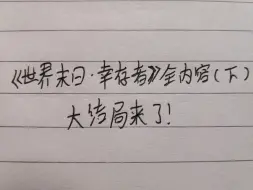 《世界末日·幸存者》全内容(下)
大结局来了!